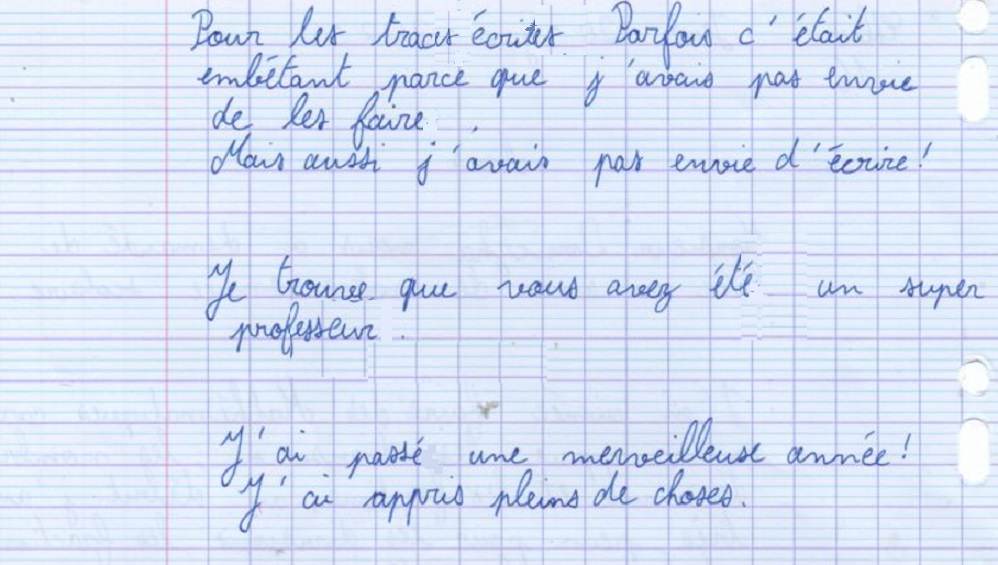 Pour les traces écrites Parfois c'était
embêtant parce que j'avais pas envie
de les faire.
Mais aussi j'avais pas envie d'écrire!
Je trouve que vous avez été un super
professeur.
J'ai passé une merveilleuse année!
J'ai appris pleins de choses.